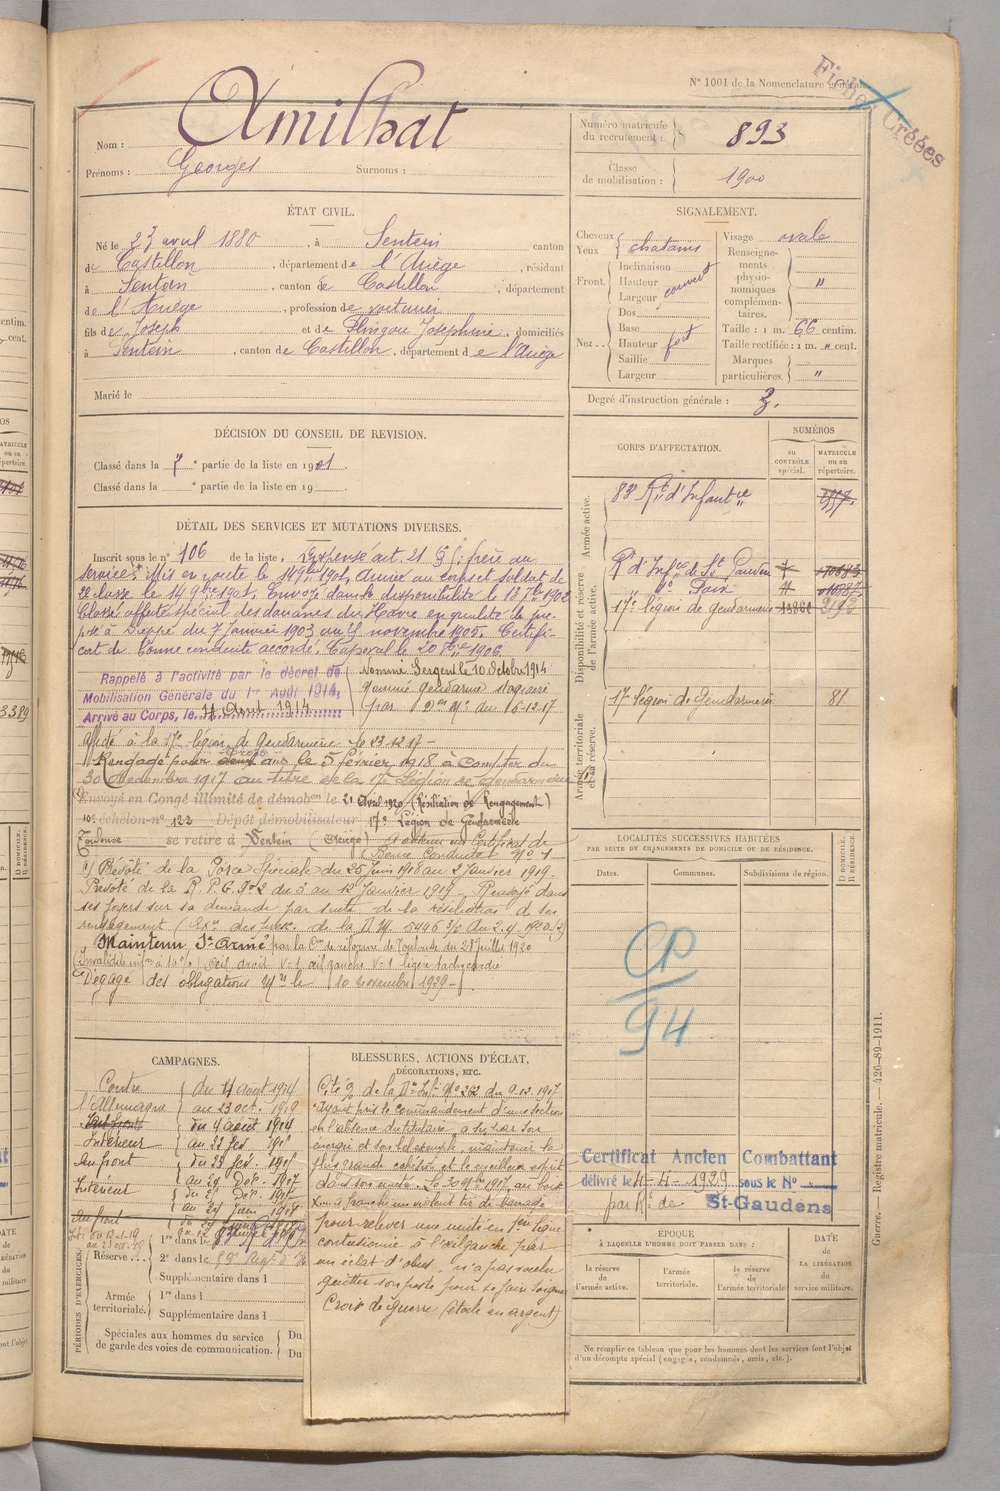 N° 1001 de la Nomenclature générale
Fiches Créées
Nom : Amilhat
Prénoms : Georges Surnoms :
Numéro matricule du recrutement : 893
Classe de mobilisation : 1900
ÉTAT CIVIL.
Né le 23 avril 1880, à Sentein canton
de Castillon, département de l'Ariège, résidant
à Sentein, canton de Castillon, département
de l'Ariège, profession de voiturier
fils de Joseph et de Josephine, domiciliés
à Sentein, canton de Castillon, département de l'Ariège
Marié le
SIGNALEMENT.
Cheveux
Yeux } chatains
Front. { Inclinaison
Hauteur
Largeur } couvert
Nez.. { Dos
Base
Hauteur
Saillie
Largeur } fort
Visage ovale
Renseignements physionomiques complémentaires. "
Taille : 1 m. 66 centim.
Taille rectifiée : 1 m. " cent.
Marques particulières. "
Degré d'instruction générale : 3.
DÉCISION DU CONSEIL DE REVISION.
Classé dans la 7e partie de la liste en 1901.
Classé dans la e partie de la liste en 19 .
DÉTAIL DES SERVICES ET MUTATIONS DIVERSES.
Inscrit sous le n° 106 de la liste. Dispensé art. 21 § frère au
service. Mis en route le 14 9bre 1901, Arrivé au corps et soldat de
2e classe le 14 9bre 1901. Envoyé dans la disponibilité le 18 7bre 1902
Classé affecté spécial des douanes du Havre en qualité de pré-
posé à Dieppe du 7 Janvier 1903 au novembre 1905. Certifi-
cat de bonne conduite accordé. Caporal le 20 1906
Rappelé à l'activité par le décret de
Mobilisation Générale du 1er Août 1914,
Arrivé au Corps, le 4 Août 1914
Nommé Sergent le 10 Octobre 1914
Nommé gendarme stagiaire
par Don Mle du 16-12-17
affecté à la 17e légion de Gendarmerie le 23-12-17 -
Rengagé pour trois ans le 5 février 1918 à compter du
30 Décembre 1917 au titre de la 17e Légion de Gendarmerie
Envoyé en Congé illimité de démobon le 21 Avril 1920 (Résiliation de Rengagement)
10e échelon n° 122 Dépôt démobilisateur 17e Légion de Gendarmerie
Toulouse se retire à Sentein (Ariège) a obtenu un Certificat de
Bonne Conduite N° 1
Prévôté de la Force Spéciale du 25 Juin 1918 au 2 Janvier 1919 -
Prévôté de la R. P. G. n° 2 du 3 au 12 Janvier 1919 - Renvoyé dans
ses foyers sur sa demande par suite de la résiliation de son
rengagement
Maintenu Sce Armé par la Con de réforme de Toulouse du 28 Juillet 1920
Invalidité infre à 10% œil droit V=1 œil gauche V=1 légère tachycardie
Dégagé des obligations Mres le 10 novembre 1929 -
CORPS D'AFFECTATION.
NUMÉROS
au CONTRÔLE spécial.
MATRICULE ou au répertoire.
Armée active.
83e Rt d'Infantie
Disponibilité et réserve de l'armée active.
Rt d'Infie de St Gaudens
" de Foix
17e légion de gendarmerie 3192
Armée territoriale et sa réserve.
17e légion de Gendarmerie 81
LOCALITÉS SUCCESSIVES HABITÉES
PAR SUITE DE CHANGEMENTS DE DOMICILE OU DE RÉSIDENCE.
Dates. Communes. Subdivisions de région.
D DOMICILE. R RÉSIDENCE.
CP
94
Certificat Ancien Combattant
délivré le 4-4-1939 sous le N°
par Rt de St-Gaudens
ÉPOQUE
À LAQUELLE L'HOMME DOIT PASSER DANS :
la réserve de l'armée active.
l'armée territoriale.
la réserve de l'armée territoriale
DATE de LA LIBÉRATION du service militaire.
Ne remplir ce tableau que pour les hommes dont les services font l'objet
d'un décompte spécial (engagés, condamnés, omis, etc.).
CAMPAGNES.
Contre l'Allemagne { du 4 août 1914
au 23 oct. 1919
Intérieur { du 4 août 1914
au 22 fév. 1915
Au front { du 23 fév. 1915
au 29 Déc. 1917
Intérieur { du Déc. 1917
au 24 juin 1918
Au front
BLESSURES, ACTIONS D'ÉCLAT,
DÉCORATIONS, ETC.
Cité O/ de la Don Inf. N° 262 du 9.12.1917
"ayant pris le commandement d'une section
en l'absence du titulaire, a su par son
énergie et son bel exemple, maintenir la
plus grande cohésion et le meilleur esprit
dans son unité. Le 30 9bre 1917, au bois
a franchi un violent tir de barrage
pour relever une unité en 1ère ligne
contusionné à l'œil gauche par
un éclat d'obus, n'a pas voulu
quitter son poste pour se faire soigner
Croix de guerre (étoile en argent)
PÉRIODES D'EXERCICES.
Réserve... { 1re dans le
2e dans le
Supplémentaire dans l
Armée territoriale. { 1re dans l
Supplémentaire dans l
Spéciales aux hommes du service
de garde des voies de communication. { Du
Du
Guerre. — Registre matricule. — 426-89-1911.